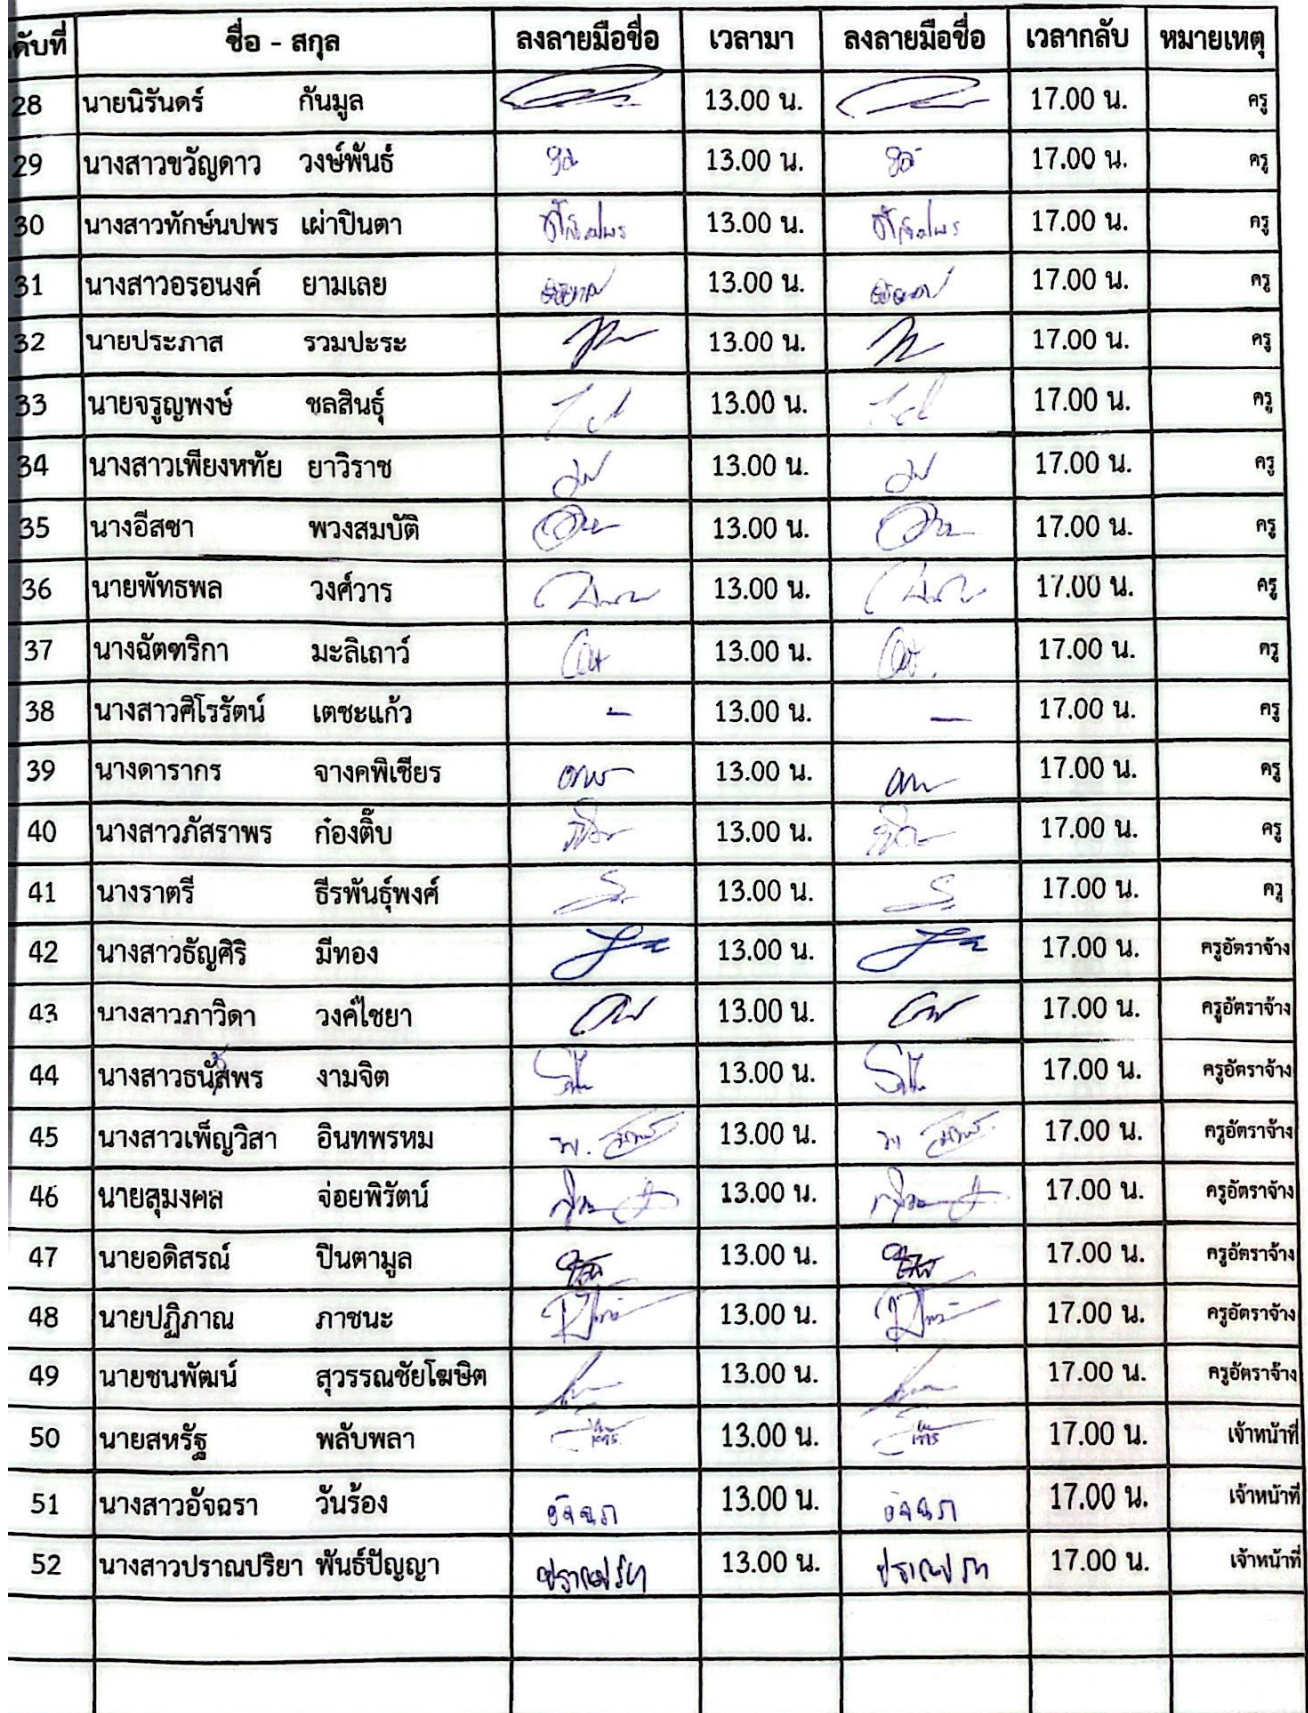 ดับที่ ชื่อ - สกุล ลงลายมือชื่อ เวลามา ลงลายมือชื่อ เวลากลับ หมายเหตุ
28 นายนิรันดร์ กันมูล 13.00 น. 17.00 น. ครู
29 นางสาวขวัญดาว วงษ์พันธ์ 13.00 น. 17.00 น. ครู
30 นางสาวทักษ์นปพร เผ่าปินตา 13.00 น. 17.00 น. ครู
31 นางสาวอรอนงค์ ยามเลย 13.00 น. 17.00 น. ครู
32 นายประภาส รวมปะระ 13.00 น. 17.00 น. ครู
33 นายจรูญพงษ์ ชลสินธุ์ 13.00 น. 17.00 น. ครู
34 นางสาวเพียงหทัย ยาวิราช 13.00 น. 17.00 น. ครู
35 นางอีสซา พวงสมบัติ 13.00 น. 17.00 น. ครู
36 นายพัทธพล วงศ์วาร 13.00 น. 17.00 น. ครู
37 นางฉัตฑริกา มะลิเถาว์ 13.00 น. 17.00 น. ครู
38 นางสาวศิโรรัตน์ เตชะแก้ว - 13.00 น. - 17.00 น. ครู
39 นางดารากร จางคพิเชียร 13.00 น. 17.00 น. ครู
40 นางสาวภัสราพร ก๋องติ๊บ 13.00 น. 17.00 น. ครู
41 นางราตรี ธีรพันธุ์พงศ์ 13.00 น. 17.00 น. ครู
42 นางสาวธัญศิริ มีทอง 13.00 น. 17.00 น. ครูอัตราจ้าง
43 นางสาวภาวิดา วงค์ไชยา 13.00 น. 17.00 น. ครูอัตราจ้าง
44 นางสาวธนัสพร งามจิต 13.00 น. 17.00 น. ครูอัตราจ้าง
45 นางสาวเพ็ญวิสา อินทพรหม 13.00 น. 17.00 น. ครูอัตราจ้าง
46 นายสุมงคล จ่อยพิรัตน์ 13.00 น. 17.00 น. ครูอัตราจ้าง
47 นายอดิสรณ์ ปินตามูล 13.00 น. 17.00 น. ครูอัตราจ้าง
48 นายปฏิภาณ ภาชนะ 13.00 น. 17.00 น. ครูอัตราจ้าง
49 นายชนพัฒน์ สุวรรณชัยโฆษิต 13.00 น. 17.00 น. ครูอัตราจ้าง
50 นายสหรัฐ พลับพลา 13.00 น. 17.00 น. เจ้าหน้าที่
51 นางสาวอัจฉรา วันร้อง อัจฉรา 13.00 น. อัจฉรา 17.00 น. เจ้าหน้าที่
52 นางสาวปราณปริยา พันธ์ปัญญา 13.00 น. 17.00 น. เจ้าหน้าที่